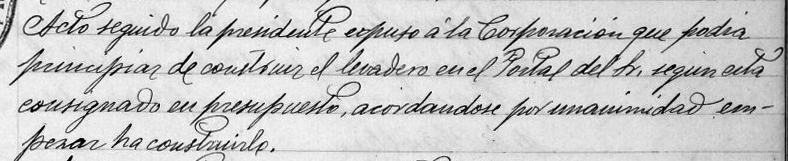 Acto seguido la presidente expuso á la Corporación que podia
principiar de construir el lavadero en el Portal del Sr. segun está
consignado en presupuesto, acordandose por unanimidad em-
pezar ha construirlo.